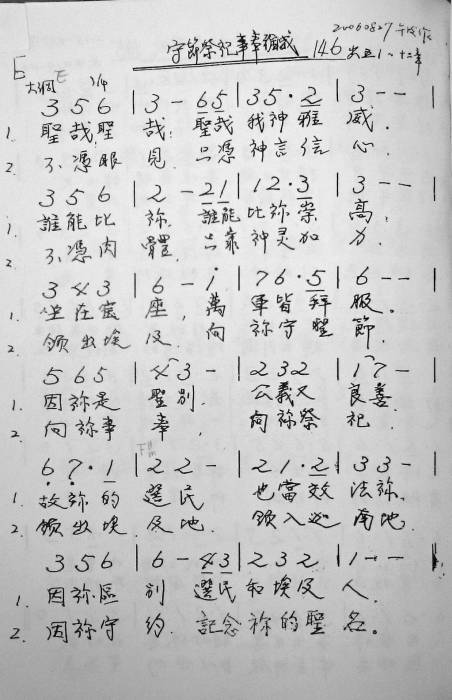 20060827
守節祭祀事奉 146 出五1~十二章
E 大調E 3/4
3 5 6 | 3 - 65 | 35·2 | 3 - - |
1. 聖哉聖 哉, 聖哉 我神 雅 威.
2. 不憑眼 見. 只憑 神言信 心.
3 5 6 | 2 - 21 | 12·3 | 3 - - |
1. 誰能比 祢. 誰能 比祢崇 高,
2. 不憑肉 體. 只靠 神灵加 力.
3 4 3 | 6 - i | 76·5 | 6 - - |
1. 坐在宝 座, 萬 軍皆拜 服。
2. 領出埃 及. 向 祢守聖 節.
5 6 5 | 4 3 - | 2 3 2 | 1 7 - |
1. 因祢是 聖別. 公義又 良善.
2. 向祢事 奉, 向祢祭 祀.
6 7·1 | 2 2 - | 2 1·2 | 3 3 - |
1. 故祢的 選民 也當效 法祢.
2. 領出埃 及地. 領入迦 南地.
3 5 6 | 6 - 43 | 2 3 2 | 1 - - |
1. 因祢區 別 選民 和埃及 人.
2. 因祢守 約. 記念 祢的聖 名。